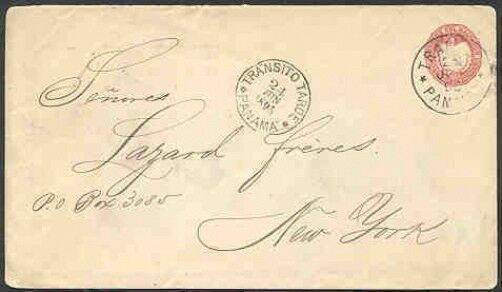 TRANSITO TARDE
24
JUN
PANAMA
TRA
PAN
Señores
Lazard frères.
P.O Box 3085
New York